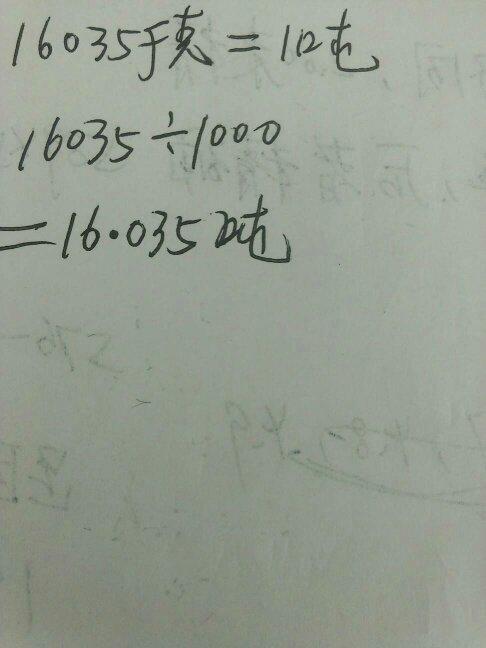 16035千克=1吨
16035÷1000
=16.035吨